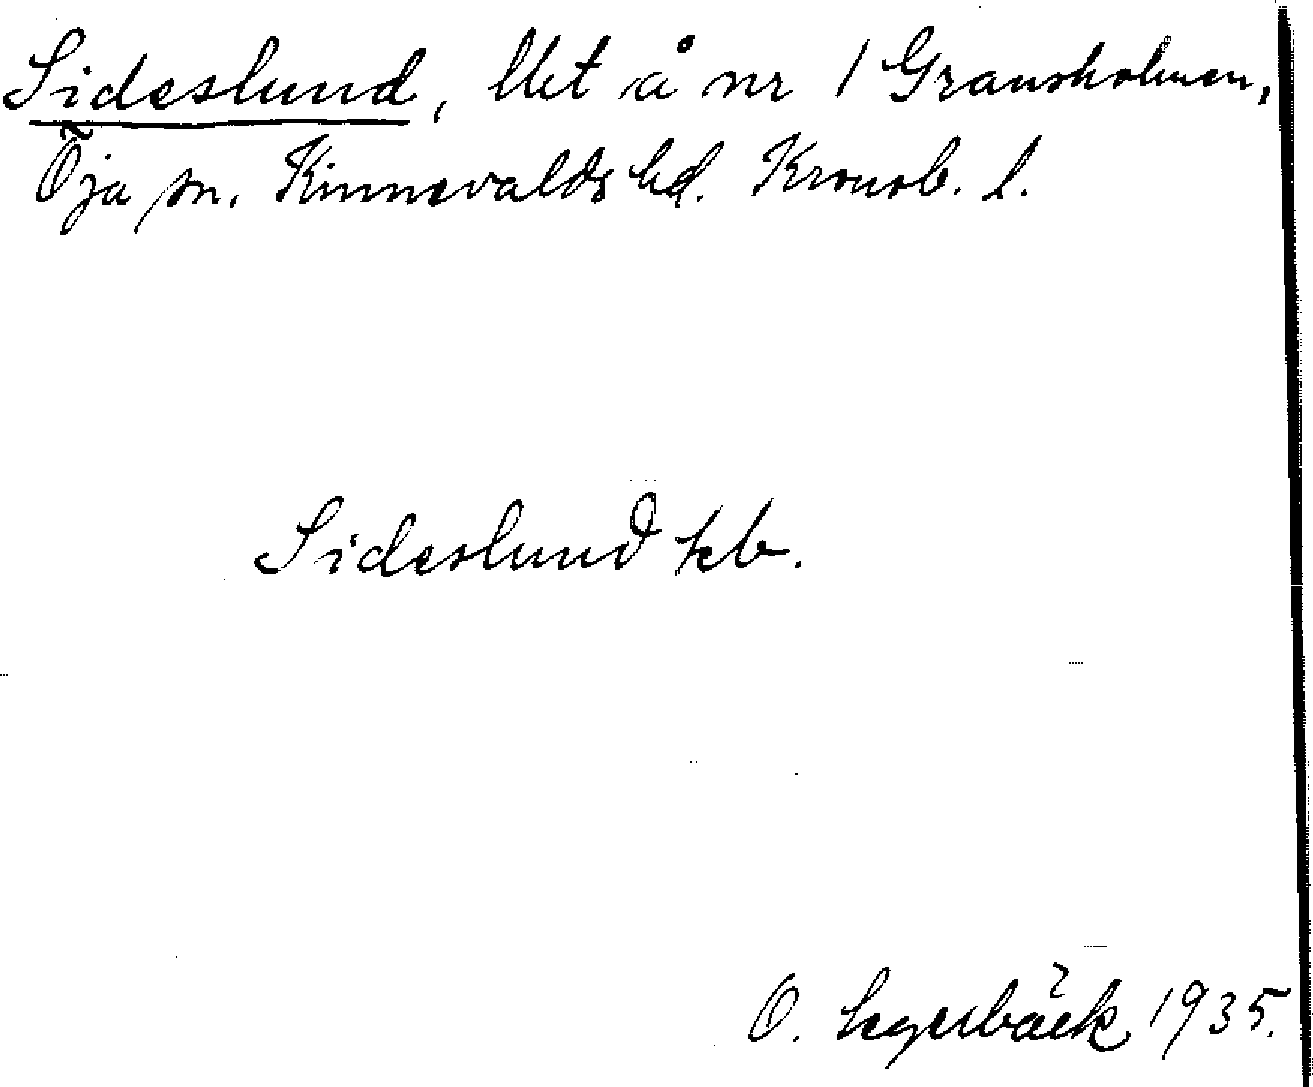 Sideslund, lht å nr 1 Gransholmen,
Öja sn. Kinnevalds hd. Kronob. l.
Sideslund kb.
O. 1935.